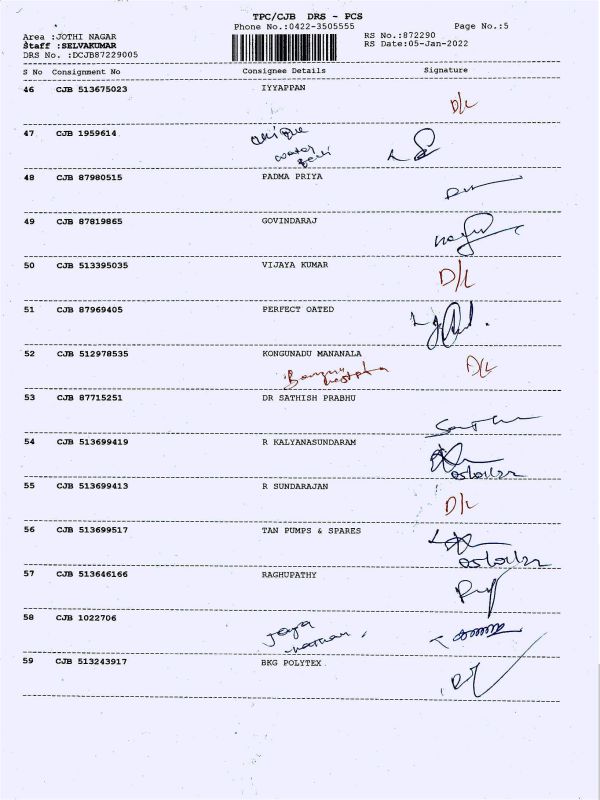 TPC/CJB DRS - PCS
Phone No.:0422-3505555 Page No.:5
Area :JOTHI NAGAR RS No.:872290
Staff :SELVAKUMAR RS Date:05-Jan-2022
DRS No. :DCJB87229005
S No Consignment No Consignee Details Signature
46 CJB 513675023 IYYAPPAN
D/L
47 CJB 1959614 unique
water
48 CJB 87980515 PADMA PRIYA
49 CJB 87819865 GOVINDARAJ
50 CJB 513395035 VIJAYA KUMAR
D/L
51 CJB 87969405 PERFECT OATED
52 CJB 512978535 KONGUNADU MANANALA
D/L
53 CJB 87715251 DR SATHISH PRABHU
54 CJB 513699419 R KALYANASUNDARAM
05/01/22
55 CJB 513699413 R SUNDARAJAN
D/L
56 CJB 513699517 TAN PUMPS & SPARES
05/01/22
57 CJB 513646166 RAGHUPATHY
58 CJB 1022706 Jaya
59 CJB 513243917 BKG POLYTEX